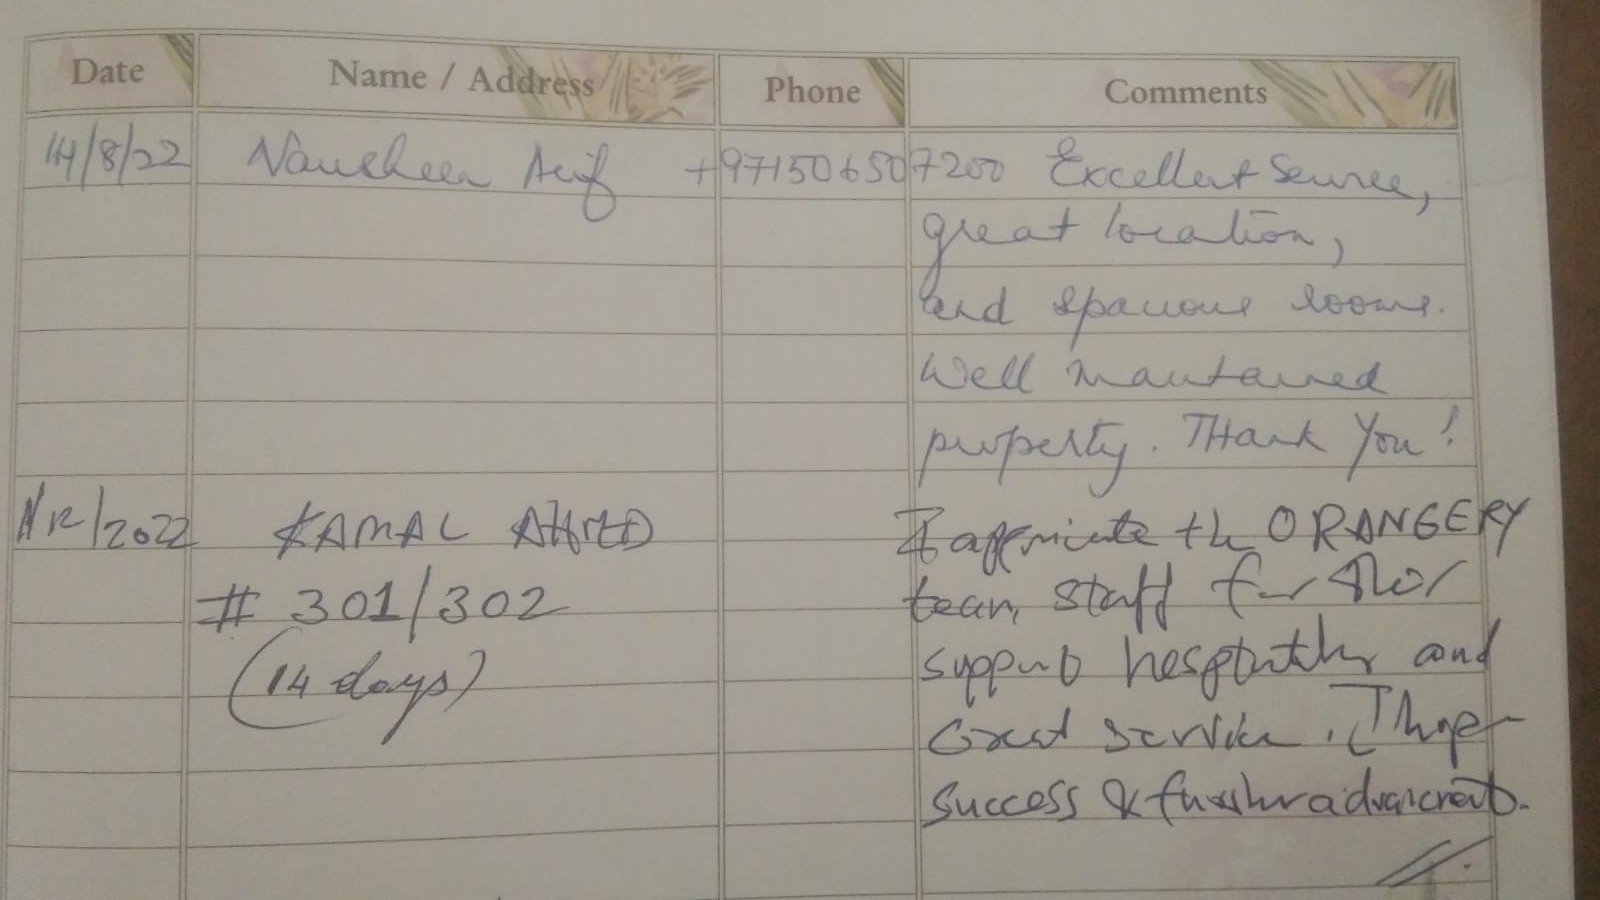 Date Name / Address Phone Comments
14/8/22 Nausheen Arif +971506507200 Excellent Service,
great location,
and spacious rooms.
Well maintained
property. THank You!
/12/2022 KAMAL AHMED I appriciate the ORANGERY
# 301/302 team, staff for their
(14 days) support hospitality and
Great service. I hope
success & further advancement.